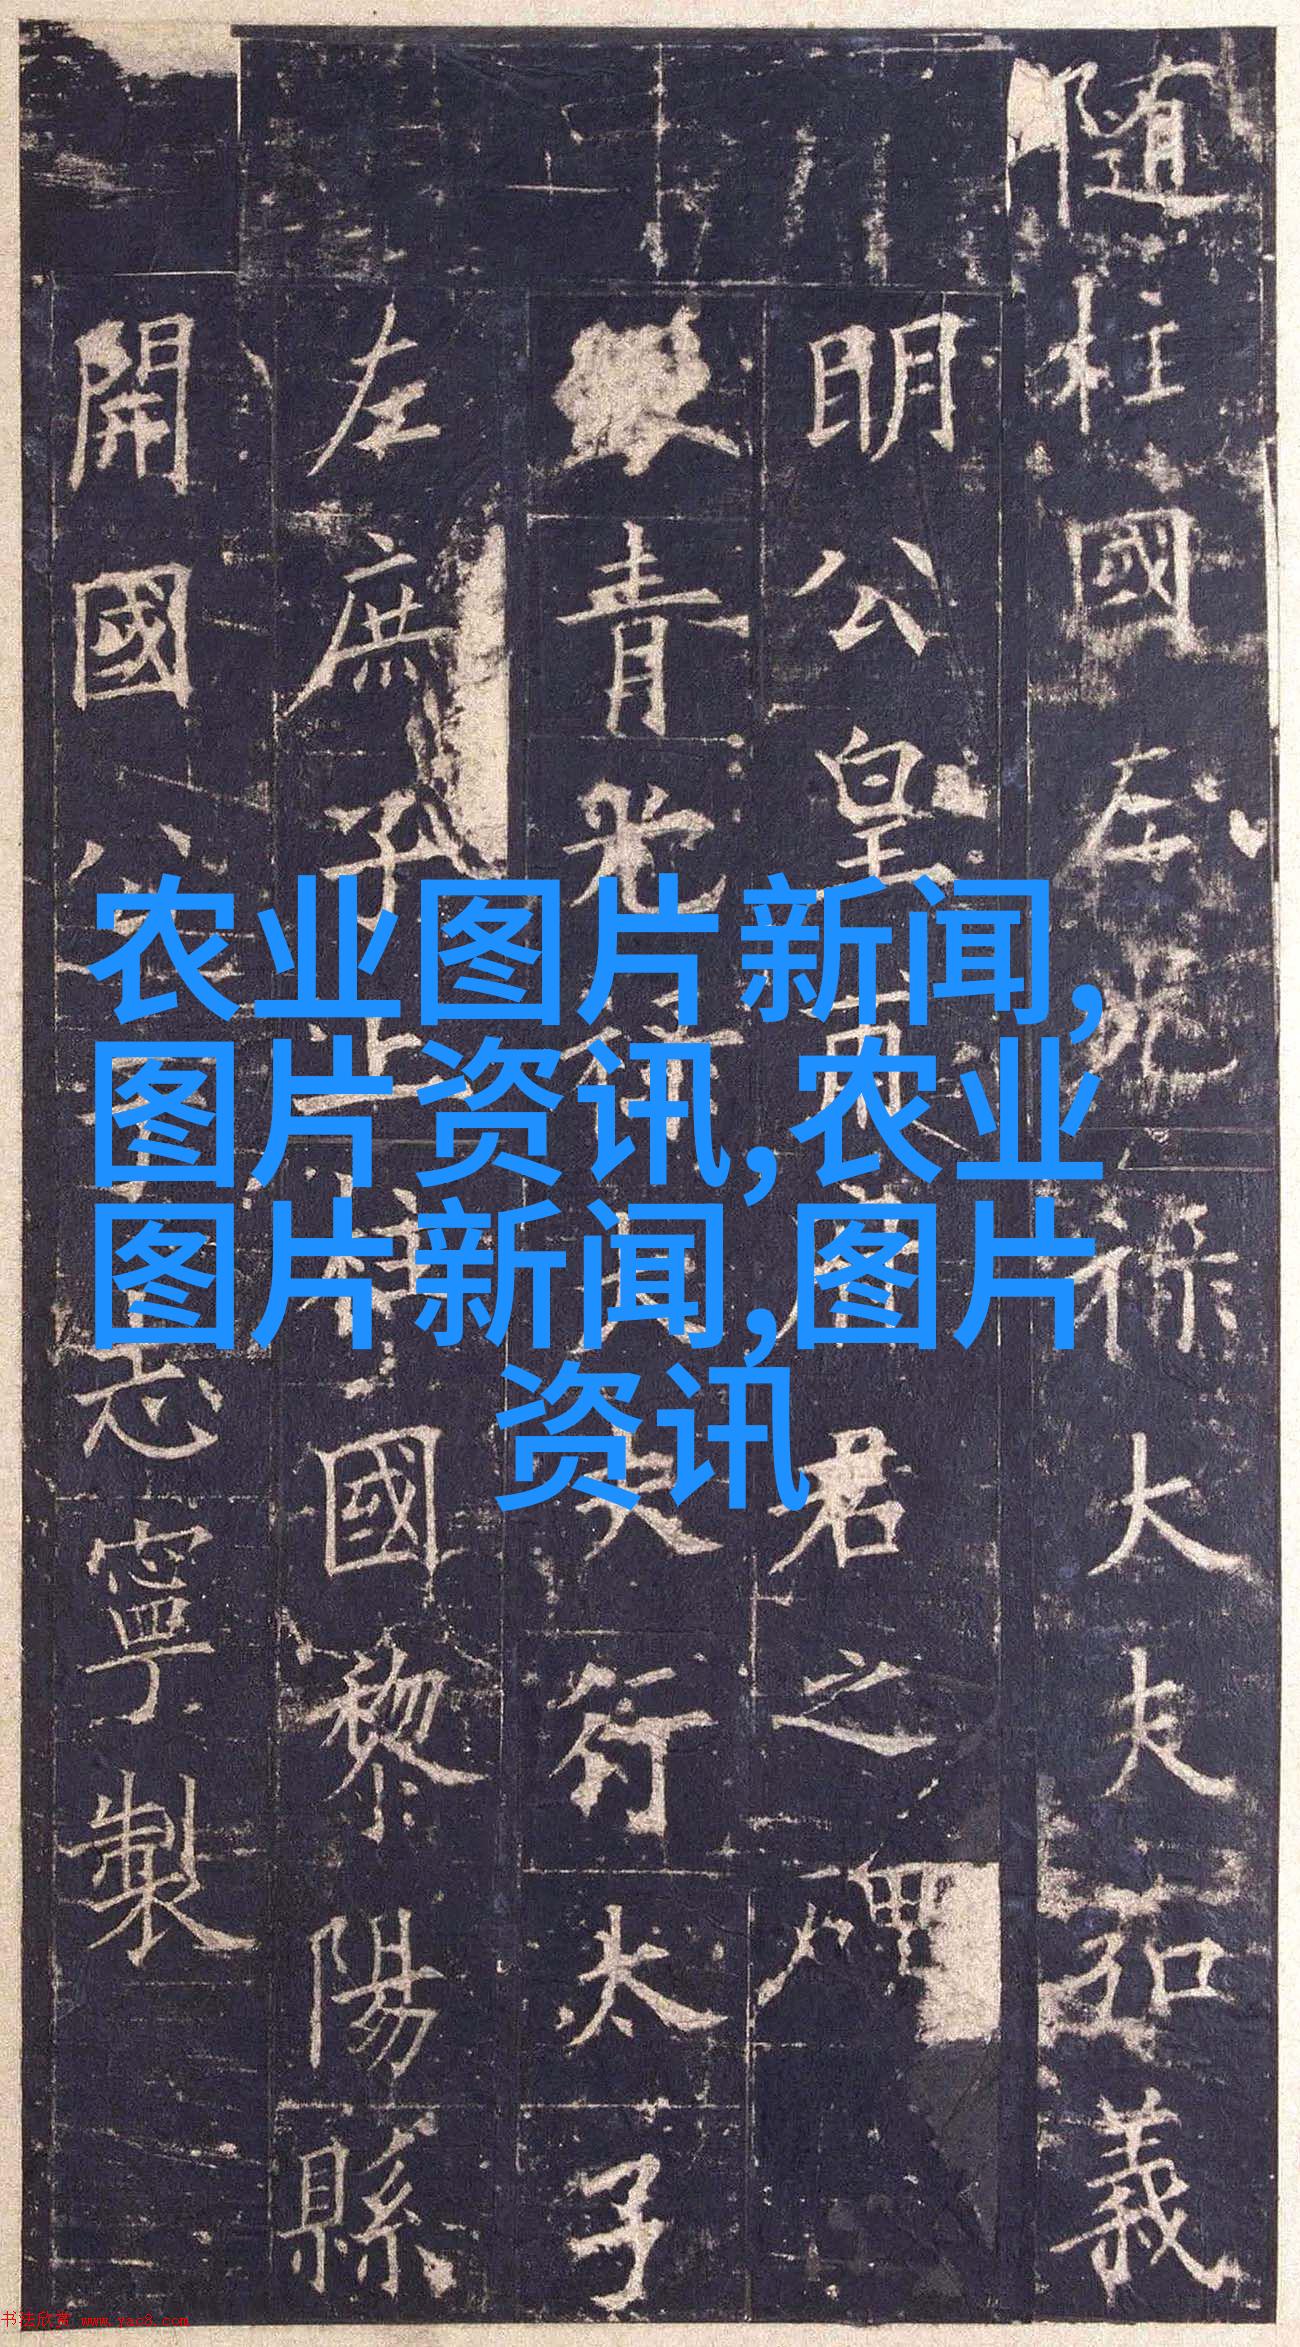 隨柱國左光祿大夫弘義
明公皇甫府君之碑
青光祿大夫行太子
左庶子上柱國黎陽縣
開國公于志寧製
农业图片新闻,
图片资讯,农业
图片新闻,图片
资讯
书法欣赏 www.yac8.com